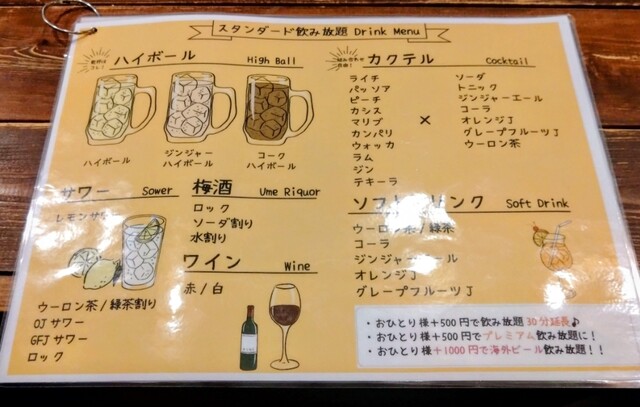 スタンダード飲み放題 Drink Menu
ハイボール High Ball
ハイボール
ジンジャー
ハイボール
コーク
ハイボール
サワー Sower
レモンサワー
ウーロン茶/緑茶割り
OJ サワー
GFJ サワー
ロック
梅酒 Ume Riquor
ロック
ソーダ割り
水割り
ワイン Wine
赤/白
カクテル Cocktail
ライチ
パッソア
ピーチ
カシス
マリブ
カンパリ
ウォッカ
ラム
ジン
テキーラ
×
ソーダ
トニック
ジンジャーエール
コーラ
オレンジJ
グレープフルーツJ
ウーロン茶
ソフトドリンク Soft Drink
ウーロン茶/緑茶
コーラ
ジンジャーエール
オレンジJ
グレープフルーツJ
・おひとり様+500円で飲み放題30分延長♪
・おひとり様+500円でプレミアム飲み放題に!
・おひとり様+1000円で海外ビール飲み放題!!